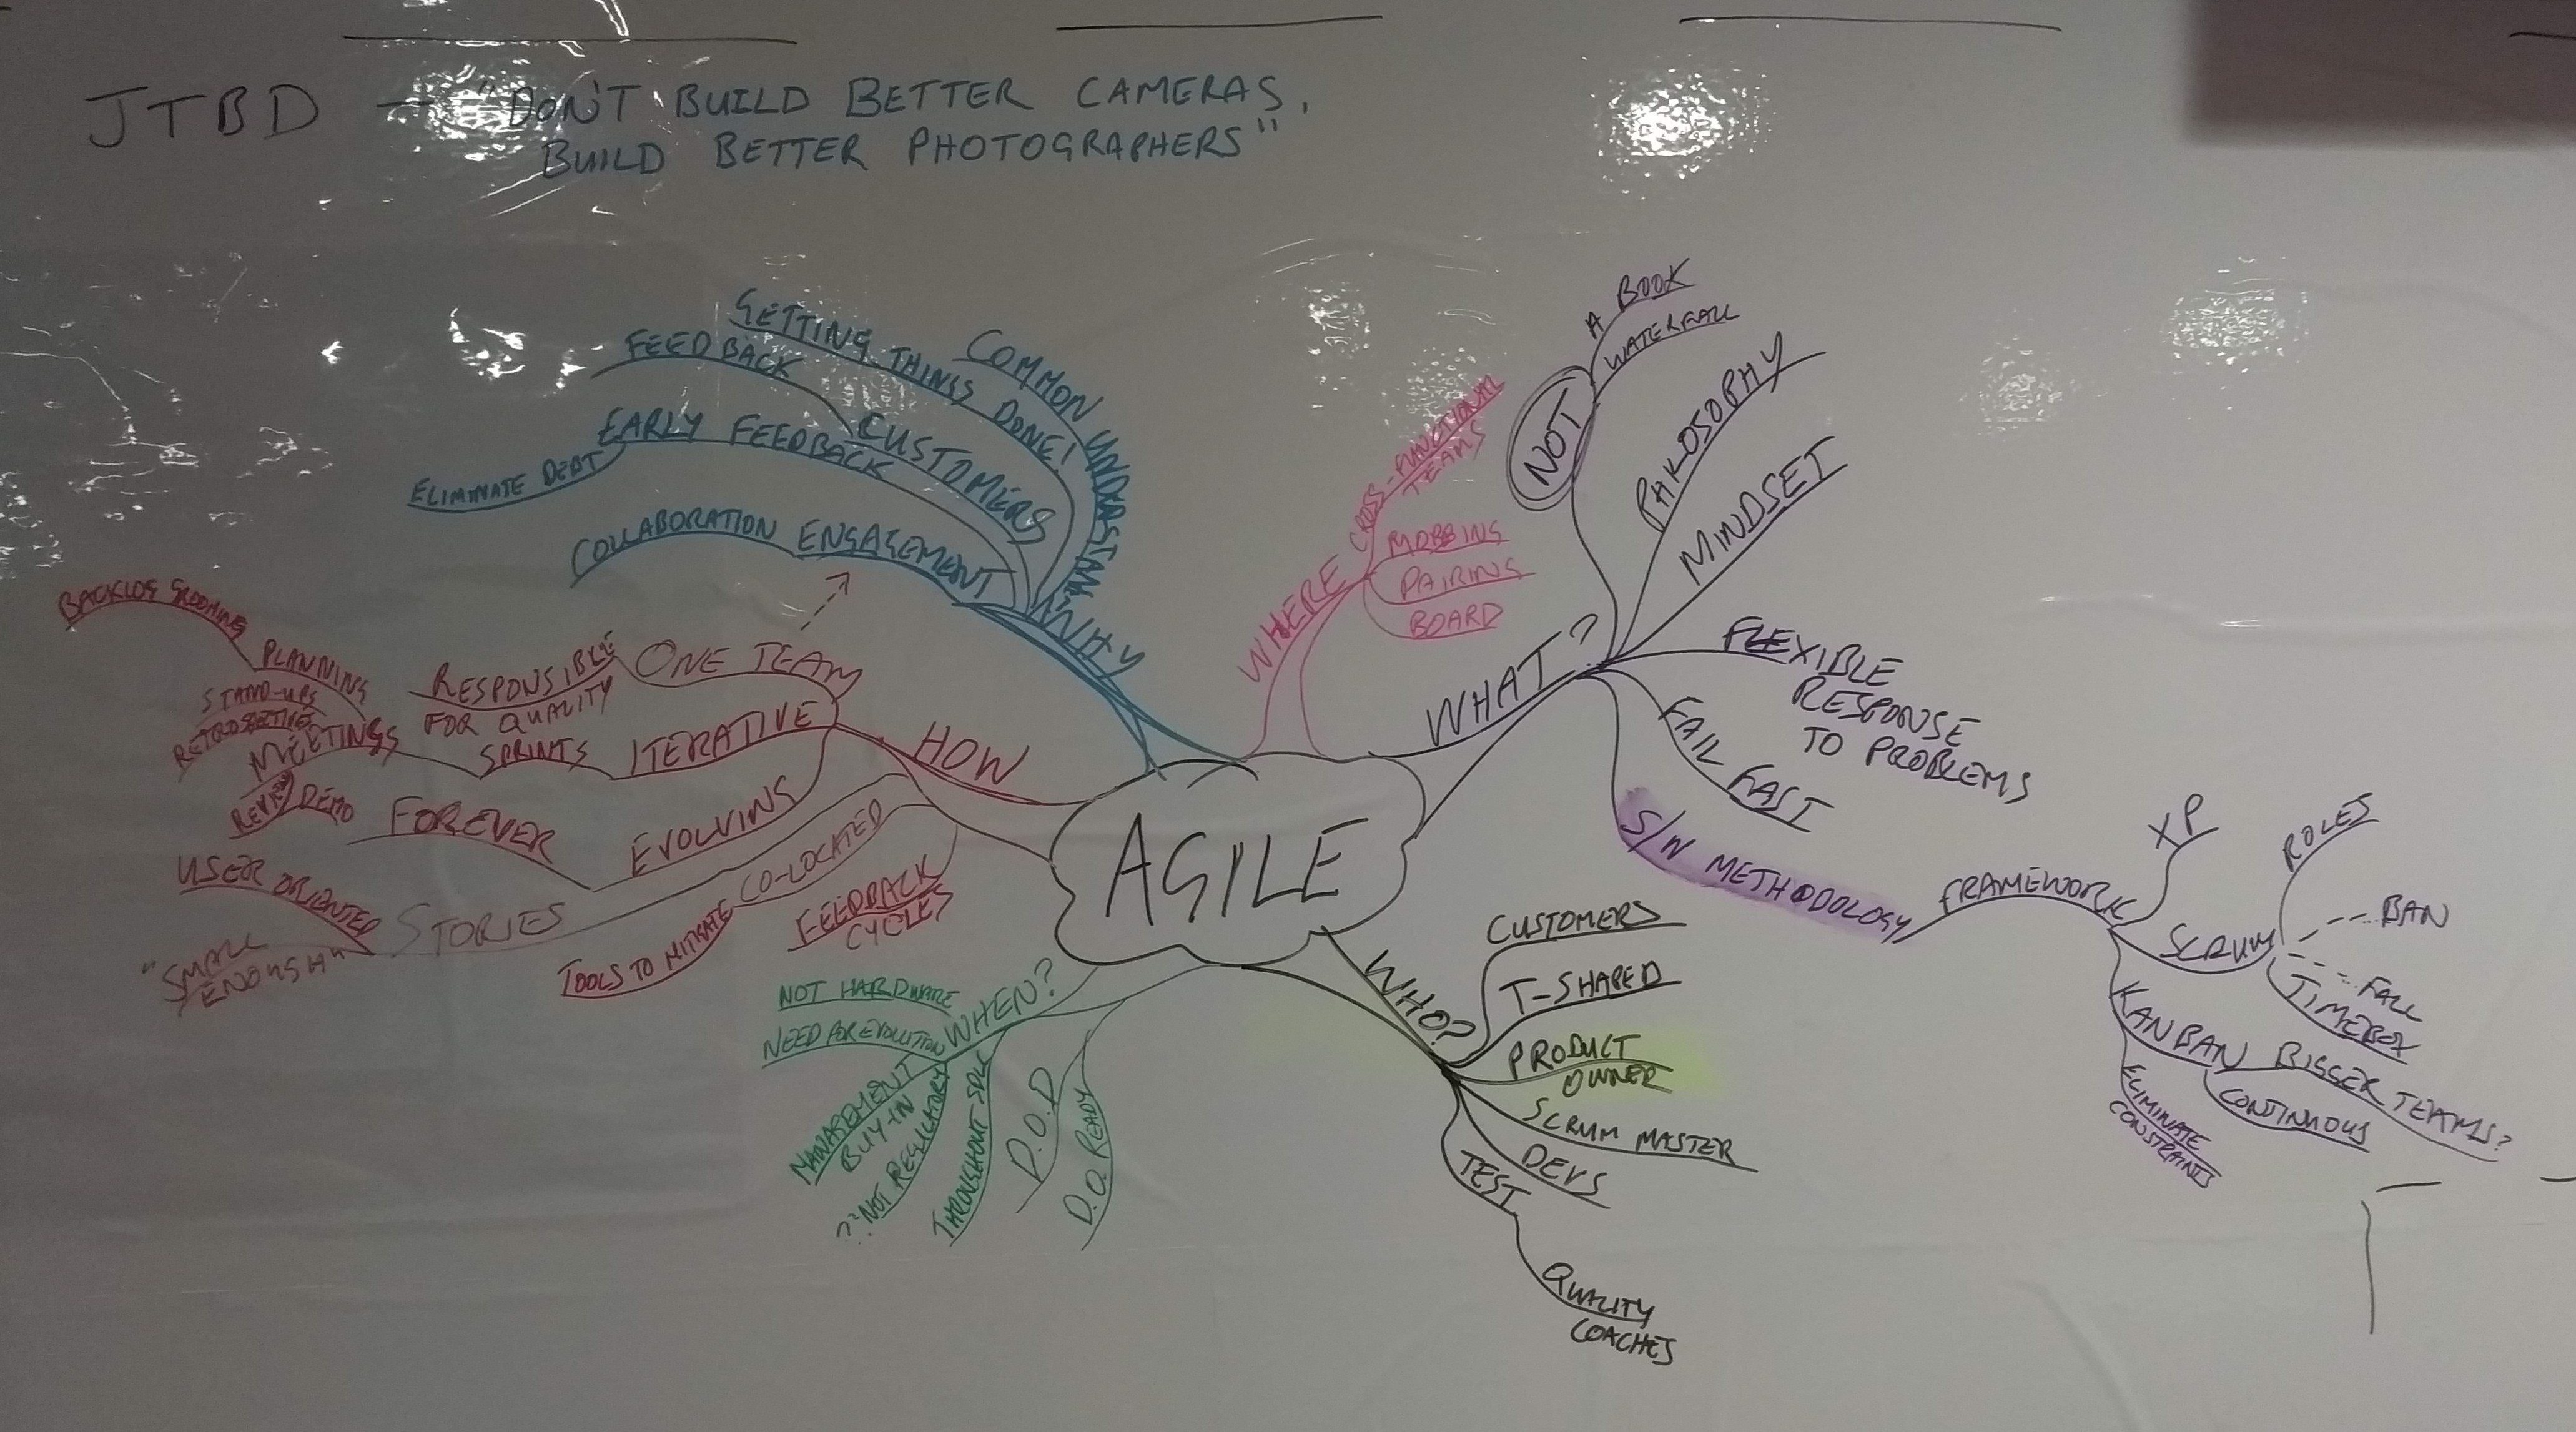 JTBD - "DON'T BUILD BETTER CAMERAS,
BUILD BETTER PHOTOGRAPHERS"
AGILE
WHY
COMMON
GETTING THINGS DONE!
CUSTOMERS
FEEDBACK
EARLY FEEDBACK
ELIMINATE DEBT
ENGAGEMENT
COLLABORATION
WHERE
CROSS-FUNCTIONAL
TEAMS
MOBBING
PAIRING
BOARD
WHAT?
NOT
A BOOK
WATERFALL
PHILOSOPHY
MINDSET
FLEXIBLE
RESPONSE
TO PROBLEMS
FAIL FAST
S/W METHODOLOGY
FRAMEWORK
XP
SCRUM
ROLES
BAN
FALL
TIMEBOX
KANBAN
BIGGER TEAMS?
CONTINUOUS
ELIMINATE
CONSTRAINTS
WHO?
CUSTOMERS
T-SHAPED
PRODUCT
OWNER
SCRUM MASTER
DEVS
TEST
QUALITY
COACHES
WHEN?
NOT HARDWARE
NEED FOR EVOLUTION
MANAGEMENT
BUY-IN
?? NOT REGULATORY
THROUGHOUT SDLC
D.O.D
D.O. READY
HOW
ONE TEAM
RESPONSIBLE
FOR QUALITY
ITERATIVE
SPRINTS
MEETINGS
PLANNING
BACKLOG GROOMING
STAND-UPS
REVIEW
DEMO
EVOLVING
FOREVER
STORIES
USER ORIENTED
"SMALL
ENOUGH"
CO-LOCATED
TOOLS TO MITIGATE
FEEDBACK
CYCLES